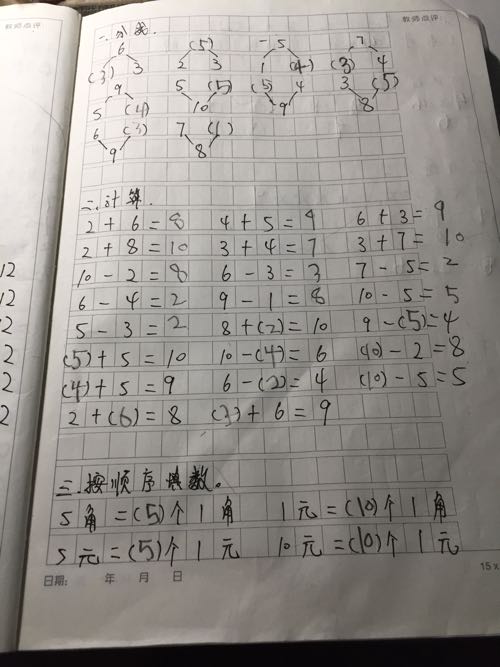 教师点评
教师点评
一、分成.
6 (5) 5 7
(3) 3 2 3 1 (4) (3) 4
9 5 (5) (5) 4 3 (5)
5 (4) 10 9 8
6 (3) 7 (1)
9 8
二.计算.
2+6=8 4+5=9 6+3=9
2+8=10 3+4=7 3+7=10
10-2=8 6-3=3 7-5=2
6-4=2 9-1=8 10-5=5
5-3=2 8+(2)=10 9-(5)=4
(5)+5=10 10-(4)=6 (10)-2=8
(4)+5=9 6-(2)=4 (10)-5=5
2+(6)=8 (3)+6=9
三.按顺序填数。
5角=(5)个1角 1元=(10)个1角
5元=(5)个1元 10元=(10)个1元
日期: 年 月 日
15 x
12
12
2
2
2
2